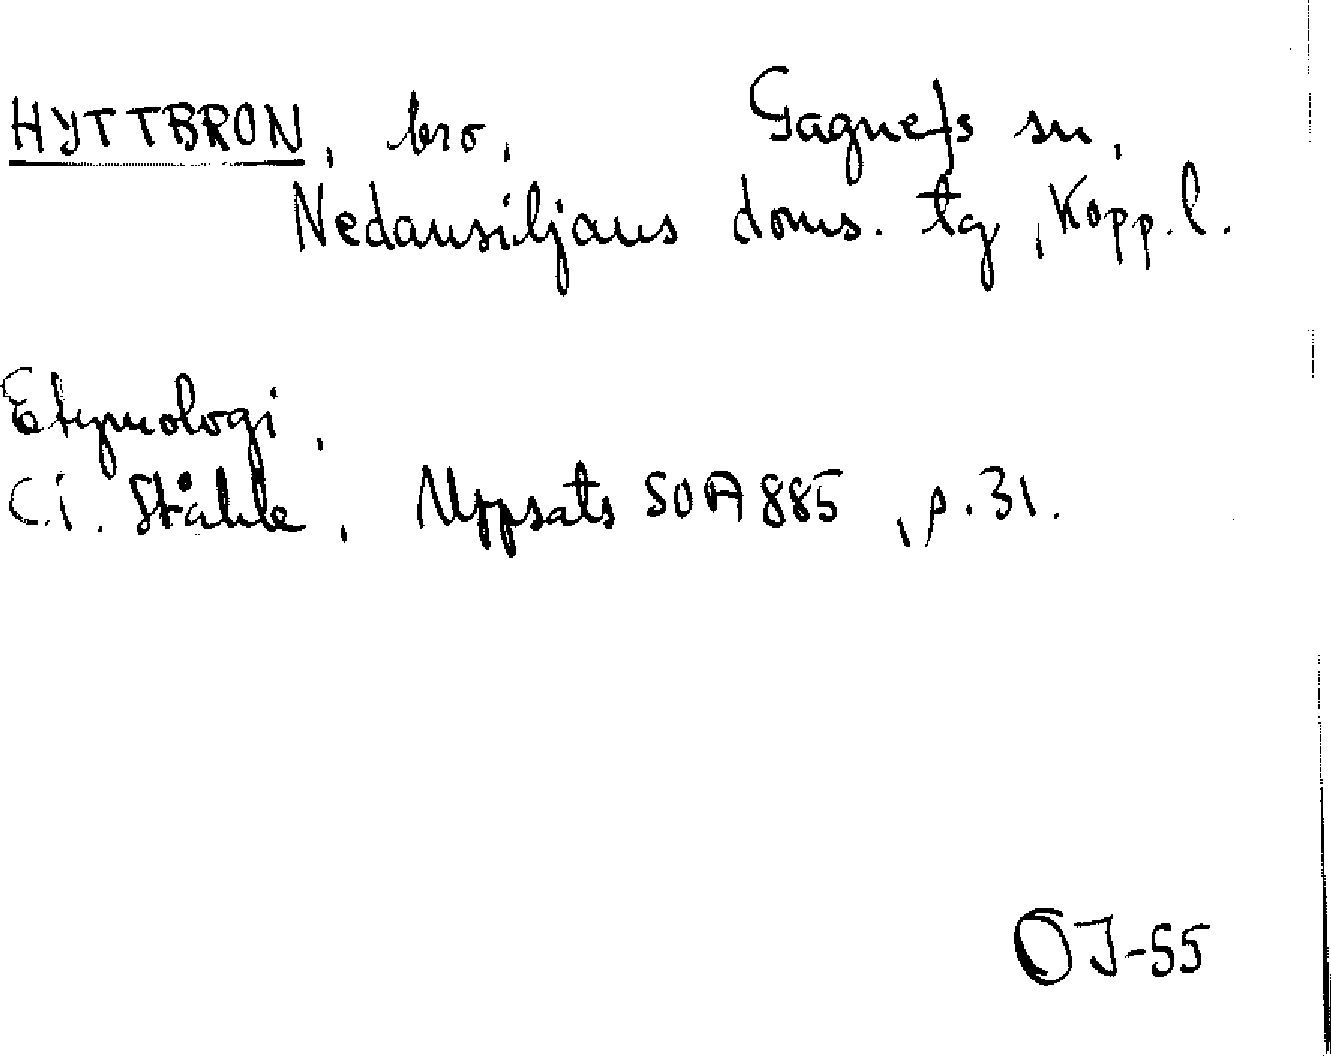 HYTTBRON, bro, Gagnefs sn,
Nedansiljans doms. tg, Kopp. l.
Etymologi,
C.I. Ståhle, Uppsats SOA 885, p. 31.
OJ-55